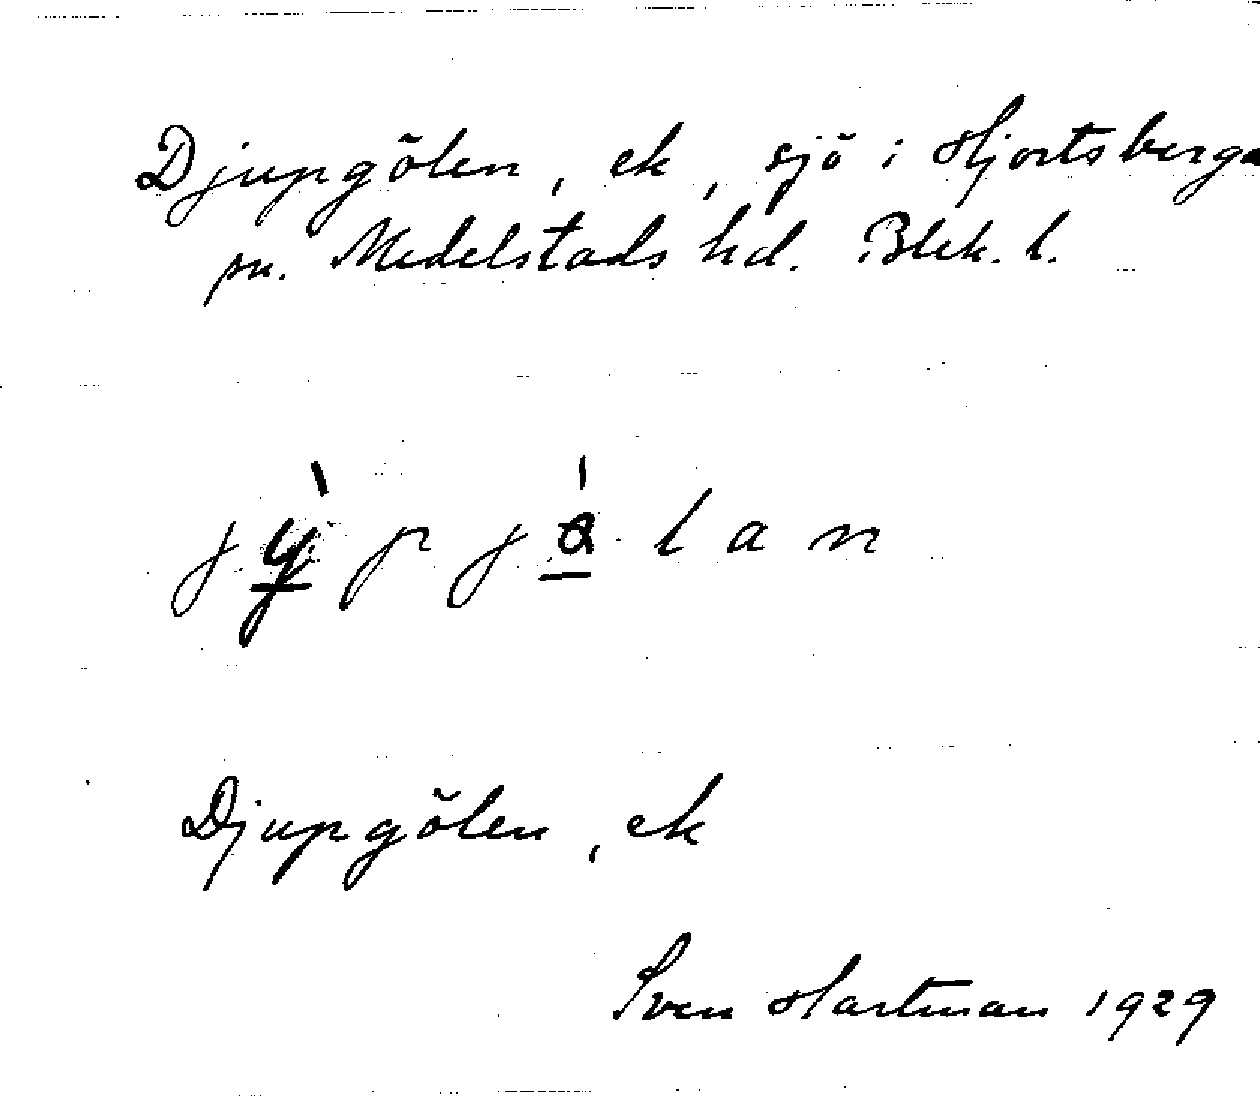 Djupgölen, ek, sjö i Hjortsberga
sn. Medelstads hd. Blek. l.
Djupgölen, ek
Sven Hartman 1929